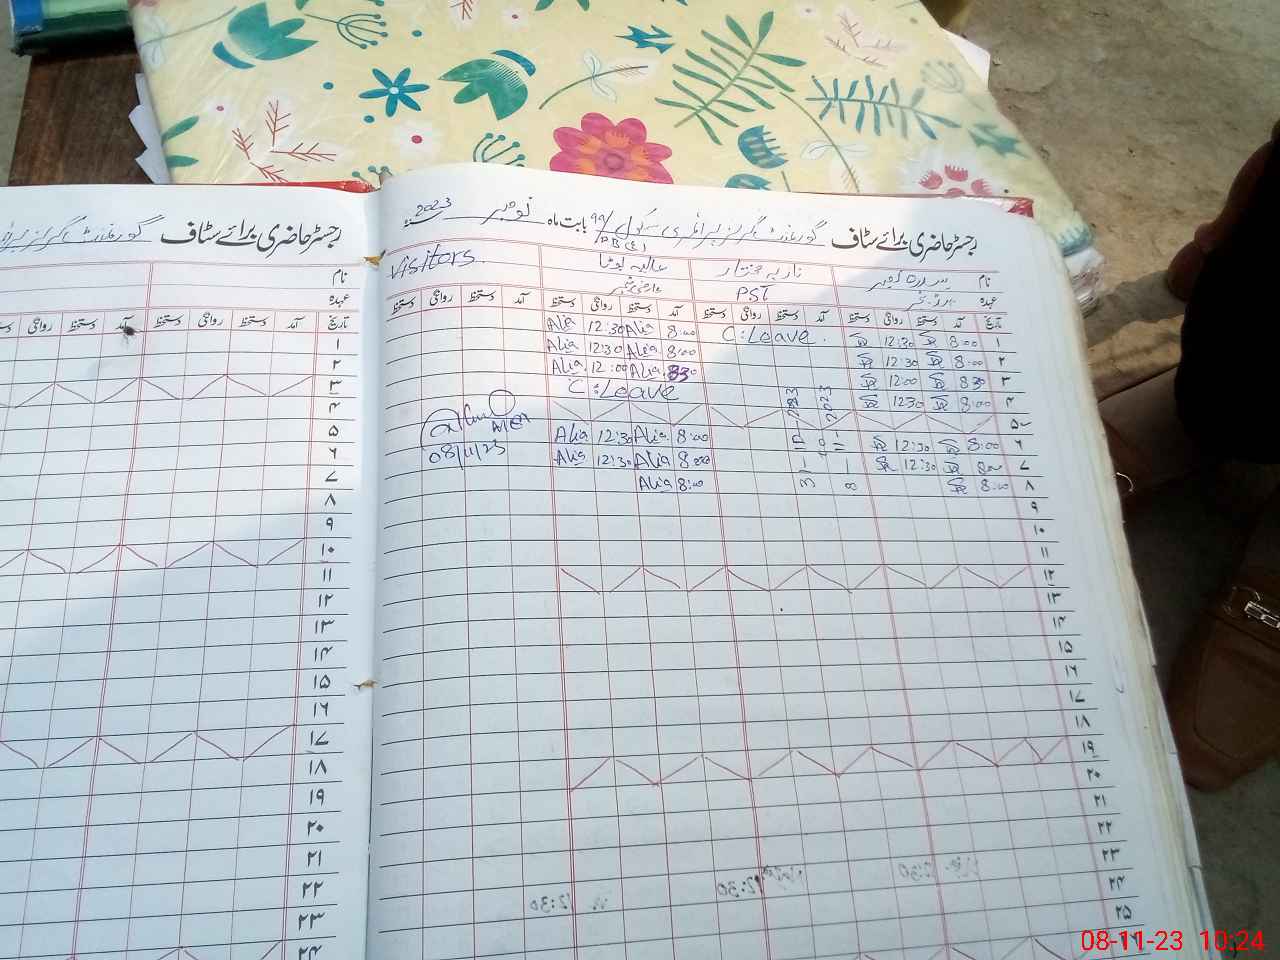 رجسٹر حاضری برائے سٹاف گورنمنٹ گرلز پرائمری سکول 99/ بابت ماہ نومبر 2023ء
نام نادیہ مختار عالیہ بوٹا Visitors.
عہدہ PST
تاریخ آمد دستخط روانگی دستخط آمد دستخط روانگی دستخط آمد دستخط روانگی دستخط آمد روانگی دستخط
۱ 8:00 12:30 C:Leave. 8:00 Alia 12:30 Alia
۲ 8:00 12:30 8:00 Alia 12:30 Alia
۳ 8:30 12:00 8:30 Alia 12:00 Alia
۴ 8:00 12:30 C:Leave
۵
۶ 8:00 12:30 8:00 Alia 12:30 Alia
۷ 8:00 12:30 8:00 Alia 12:30 Alia
08/11/23
۸ 8:00 8:00 Alia
31-10-2023
8-11-2023
۹
۱۰
۱۱
۱۲
۱۳
۱۴
۱۵
۱۶
۱۷
۱۸
۱۹
۲۰
۲۱
۲۲
۲۳
۲۴
۲۵
رجسٹر حاضری برائے سٹاف گورنمنٹ گرلز
نام
عہدہ
تاریخ آمد دستخط روانگی دستخط آمد دستخط روانگی
۱
۲
۳
۴
۵
۶
۷
۸
۹
۱۰
۱۱
۱۲
۱۳
۱۴
۱۵
۱۶
۱۷
۱۸
۱۹
۲۰
۲۱
۲۲
۲۳
۲۴
08-11-23 10:24